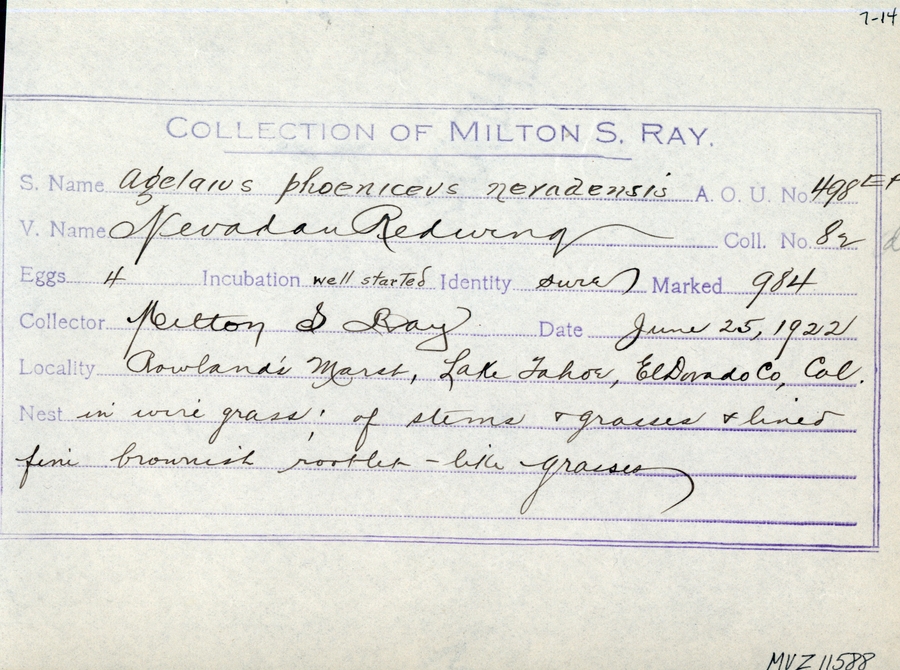 7-14
COLLECTION OF MILTON S. RAY.
S. Name Agelaius phoeniceus nevadensis A. O. U. No. 498
V. Name Nevadan Redwing Coll. No. 82
Eggs 4 Incubation well started Identity sure Marked 984
Collector Milton S Ray Date June 25, 1922
Locality Rowland's Marsh, Lake Tahoe, El Dorado Co, Cal.
Nest in wire grass; of stems & grasses & lined
fine brownish rootlet-like grasses
MVZ 11588